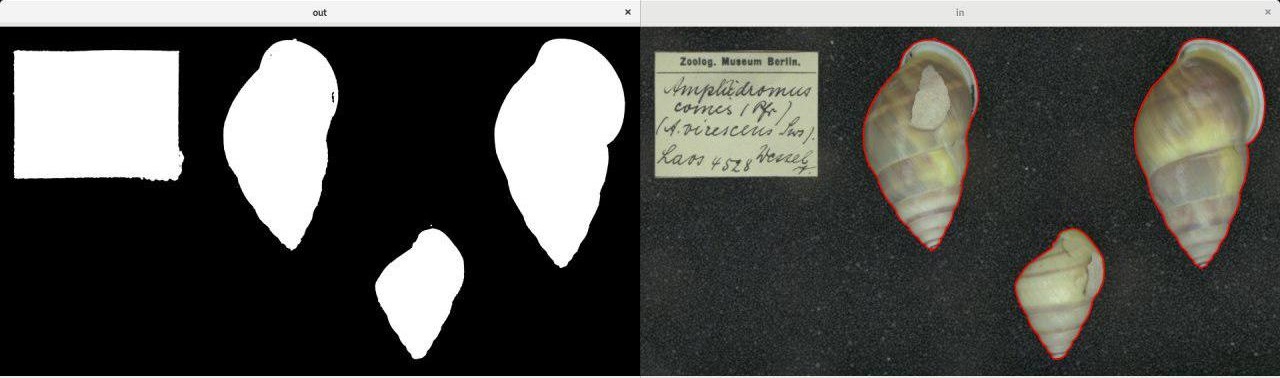 out × in ×
Zoolog. Museum Berlin.
Amphidromus
comes (Pfr.)
(A. virescens Sws).
Laos 4528 Wessel